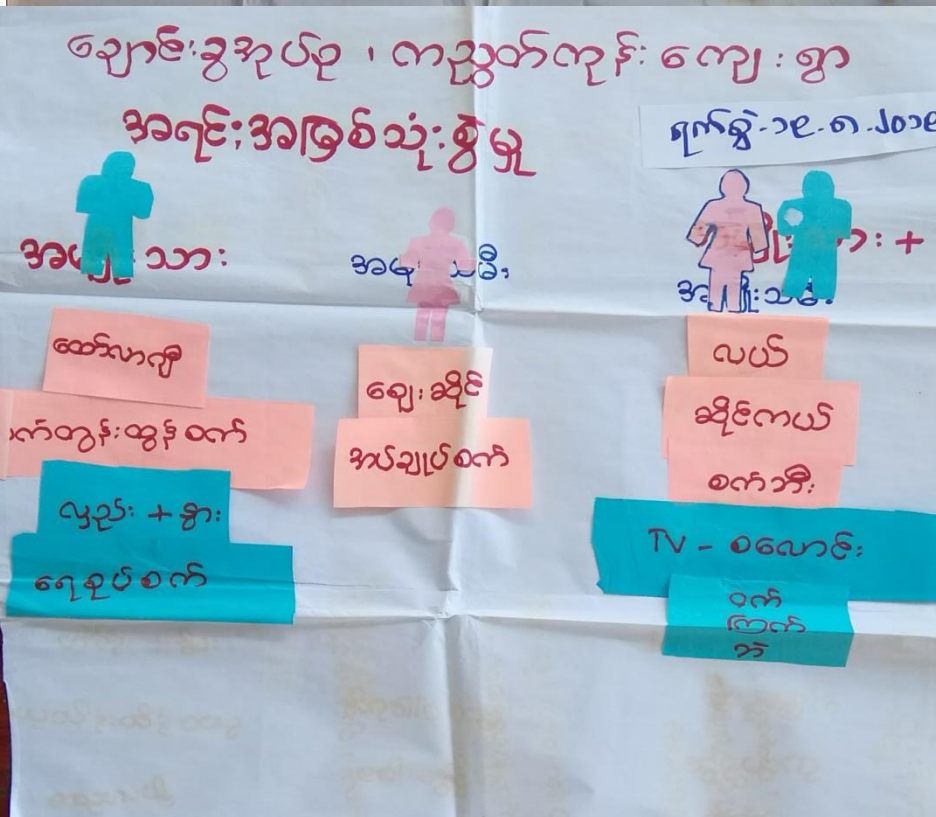 ချောင်းခွအုပ်စု ၊ ကညွတ်ကုန်း ကျေးရွာ
အရင်းအမြစ်သုံးစွဲမှု
ရက်စွဲ-၁၉.၈.၂၀၁၉
အမျိုးသား
အမျိုးသမီး
မျိုးသား +
အမျိုးသမီး
ထော်လာဂျီ
လက်တွန်းထွန်စက်
လှည်း + နွား
ရေစုပ်စက်
ဈေးဆိုင်
အပ်ချုပ်စက်
လယ်
ဆိုင်ကယ်
စက်ဘီး
TV - စလောင်း
ဝက်
ကြက်
ဘဲ